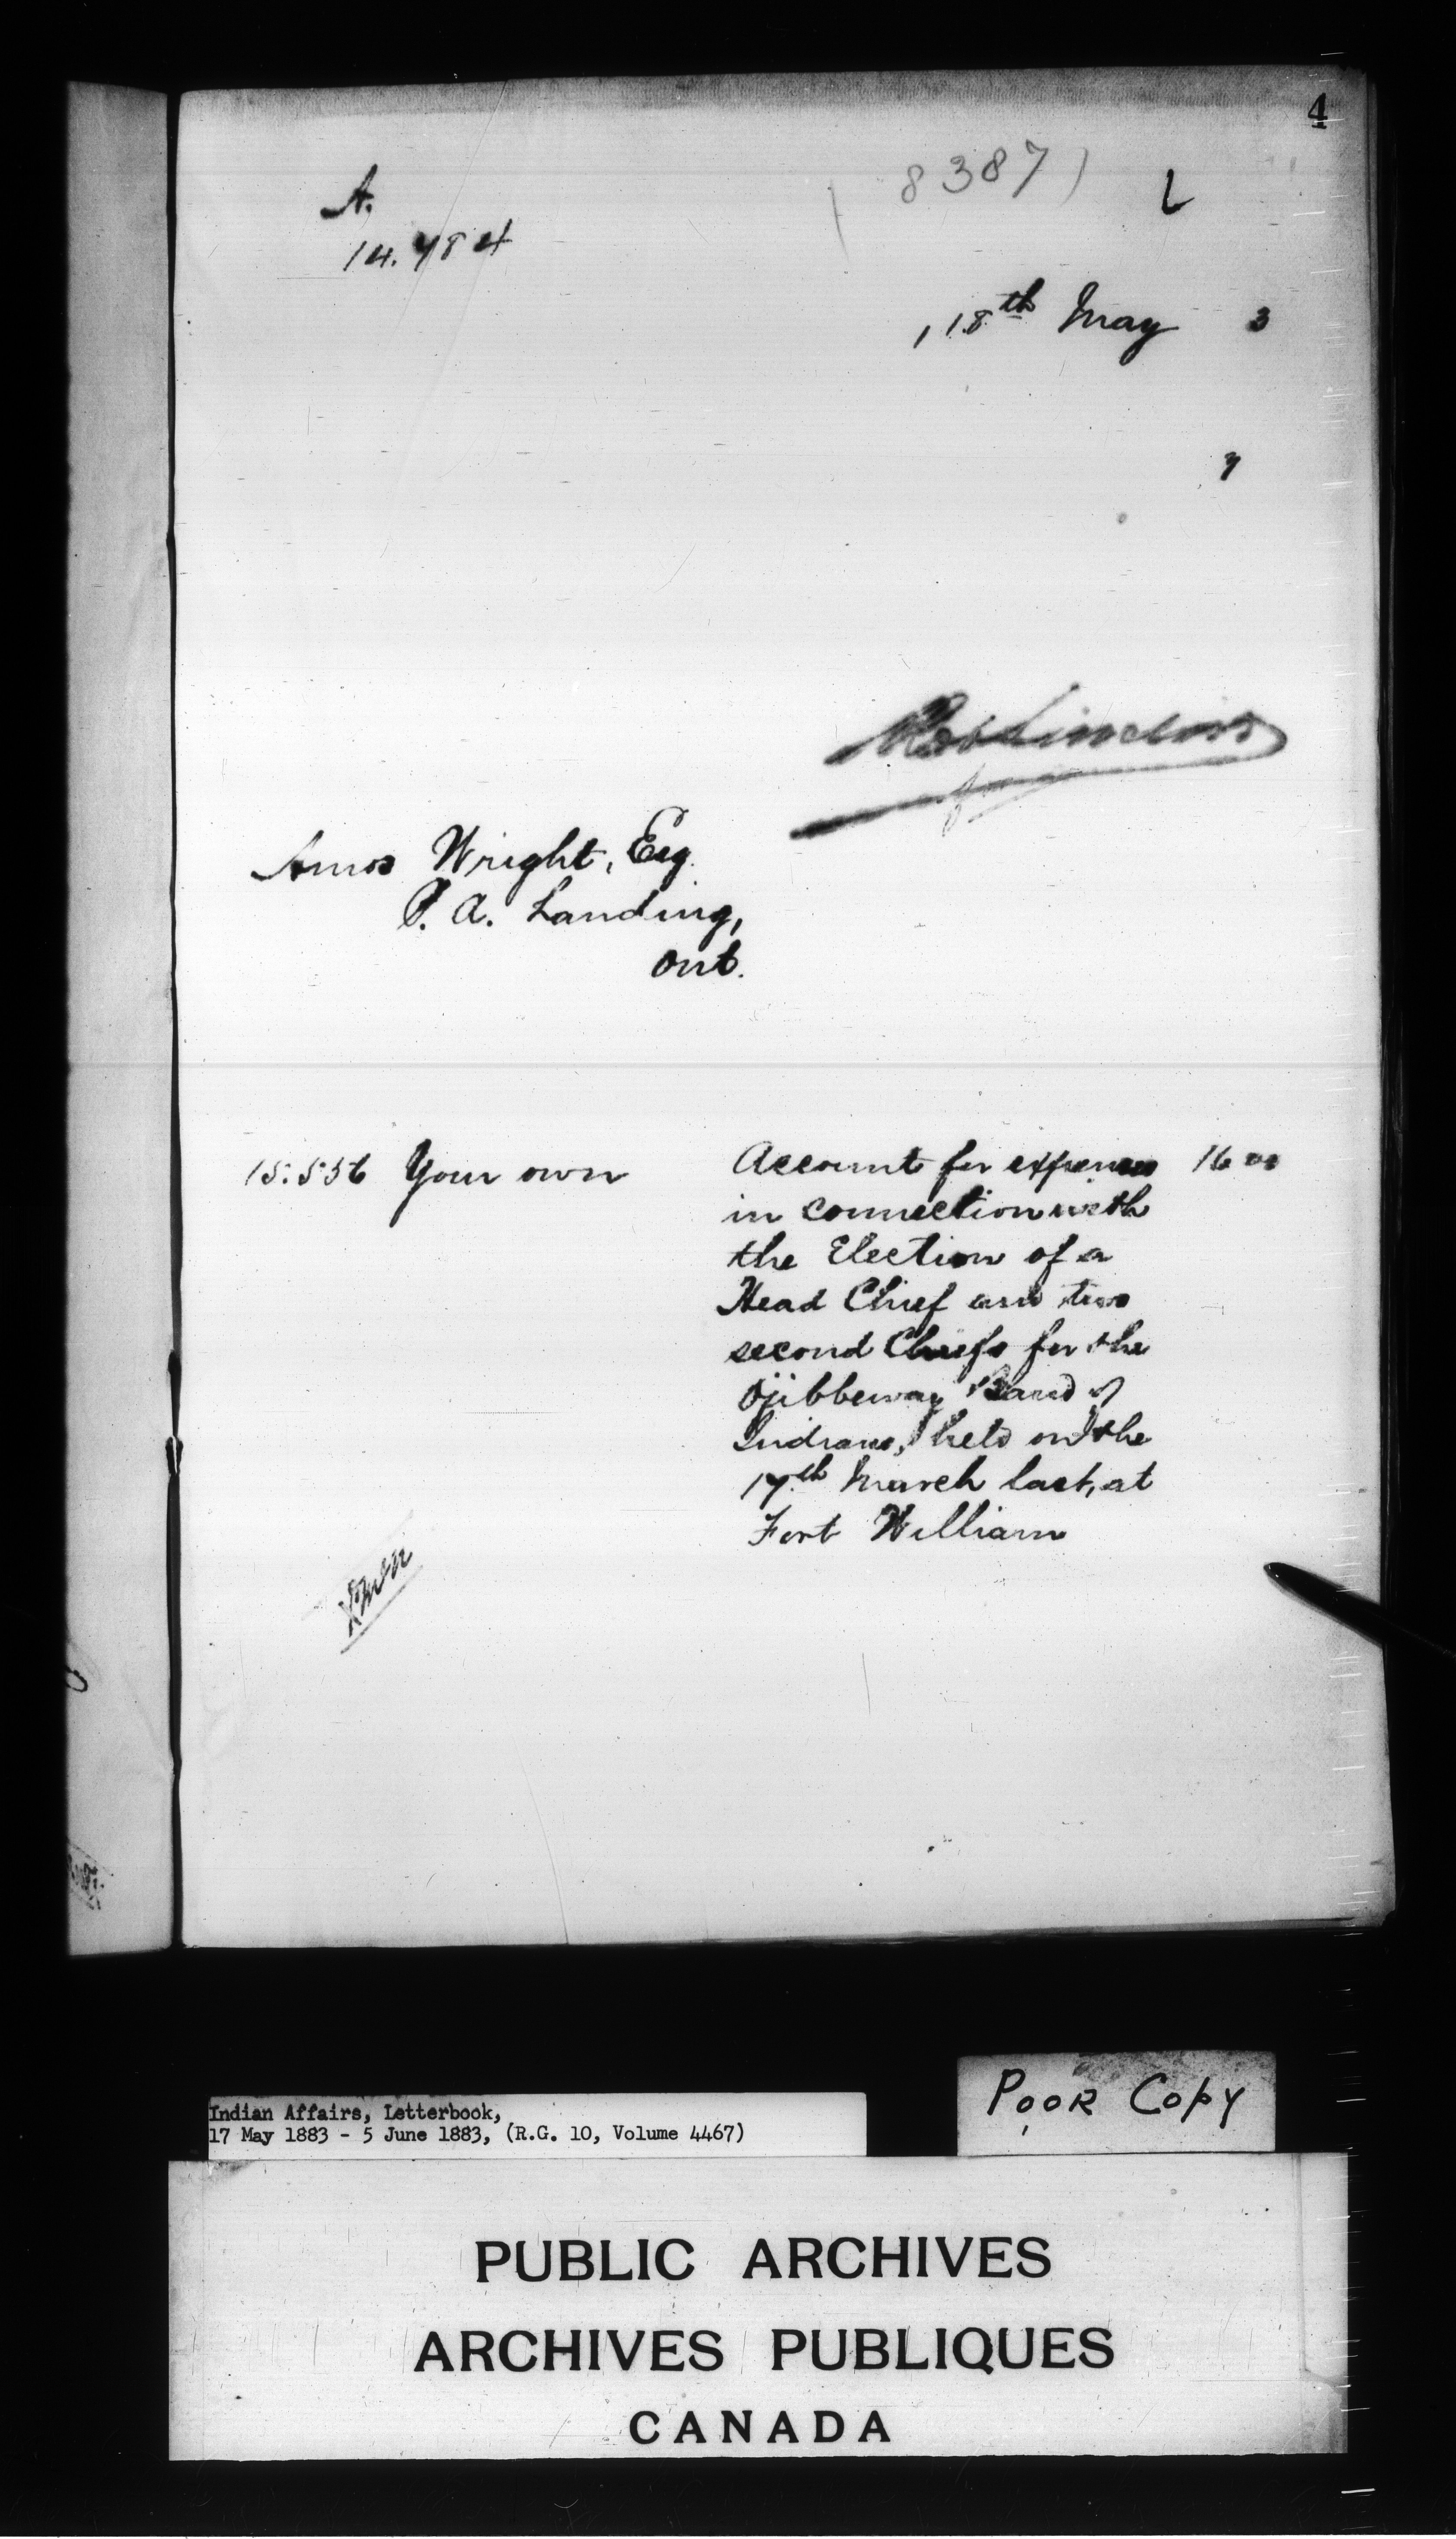 4
8387)
L
A.
14.784
18th May 3
Amos Wright, Esq.
P. A. Landing,
Ont.
15.556 Your own Account for expenses 16 00
in connection with
the Election of a
Head Chief and two
second Chiefs for the
Ojibbeway Band of
Indians, held on the
17th March last, at
Fort William
Indian Affairs, Letterbook,
17 May 1883 - 5 June 1883, (R.G. 10, Volume 4467)
POOR COPY
PUBLIC ARCHIVES
ARCHIVES PUBLIQUES
CANADA